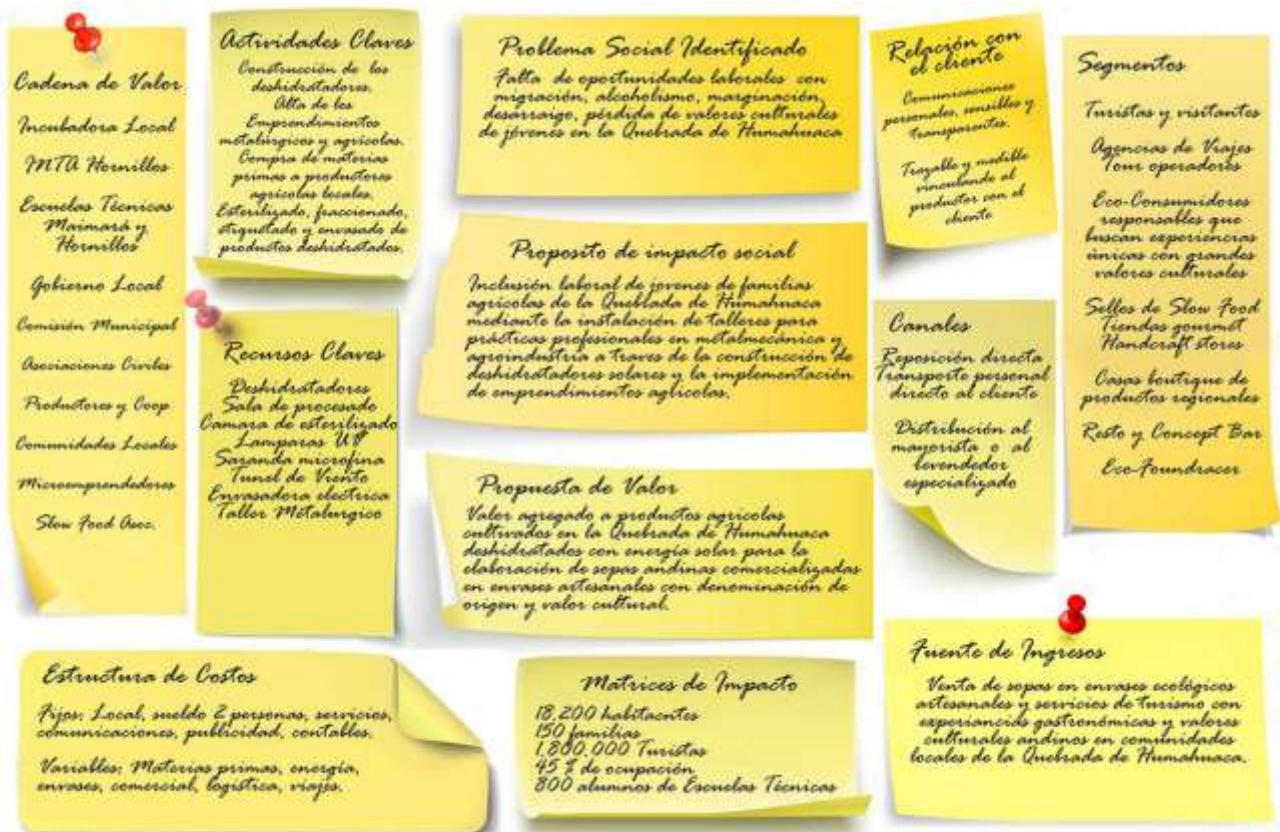 Cadena de Valor
Incubadora Local
INTA Hornillos
Escuelas Técnicas
Maimará y
Hornillos
Gobierno Local
Comisión Municipal
Asociaciones Civiles
Productores y Coop
Comunidades Locales
Microemprendedores
Slow Food Asoc.
Actividades Claves
Construcción de los
deshidratadores.
Alta de los
Emprendimientos
metalúrgicos y agrícolas.
Compra de materias
primas a productores
agrícolas locales.
Esterilizado, fraccionado,
etiquetado y envasado de
productos deshidratados.
Recursos Claves
Deshidratadores
Sala de procesado
Camara de esterilizado
Lamparas UV
Saranda microfina
Tunel de Viento
Envasadora electrica
Taller Métalurgico
Problema Social Identificado
Falta de oportunidades laborales con
migración, alcoholismo, marginación,
desarraigo, pérdida de valores culturales
de jóvenes en la Quebrada de Humahuaca
Proposito de impacto social
Inclusión laboral de jovenes de familias
agrícolas de la Queblada de Humahuaca
mediante la instalación de talleres para
prácticas profesionales en metalmecánica y
agroindustria a traves de la construcción de
deshidratadores solares y la implementación
de emprendimientos aglicolas.
Propuesta de Valor
Valor agregado a productos agricolas
cultivados en la Quebrada de Humahuaca
deshidratados con energía solar para la
elaboración de sopas andinas comercializadas
en envases artesanales con denominación de
origen y valor cultural.
Relación con
el cliente
Comunicaciones
personales, sensibles y
transparentes.
Trazable y medible
vinculando al
productor con el
cliente
Canales
Reposición directa
Transporte personal
directo al cliente
Distribución al
mayorista o al
levendedor
especializado
Segmentos
Turistas y visitantes
Agencias de Viajes
Tour operadores
Eco-Consumidores
responsables que
buscan experiencias
únicas con grandes
valores culturales
Selles de Slow Food
Tiendas gourmet
Handcraft stores
Casas boutique de
productos regionales
Resto y Concept Bar
Eco-Foundracer
Estructura de Costos
Fijos: Local, sueldo 2 personas, servicios,
comunicaciones, publicidad, contables.
Variables: Materias primas, energía,
envases, comercial, logística, viajes.
Matrices de Impacto
18.200 habitacntes
150 familias
1.800.000 Turistas
45 % de ocupación
800 alumnos de Escuelas Técnicas
Fuente de Ingresos
Venta de sopas en envases ecológicos
artesanales y servicios de turismo con
experiancias gastronómicas y valores
culturales andinos en comunidades
locales de la Quebrada de Humahuaca.